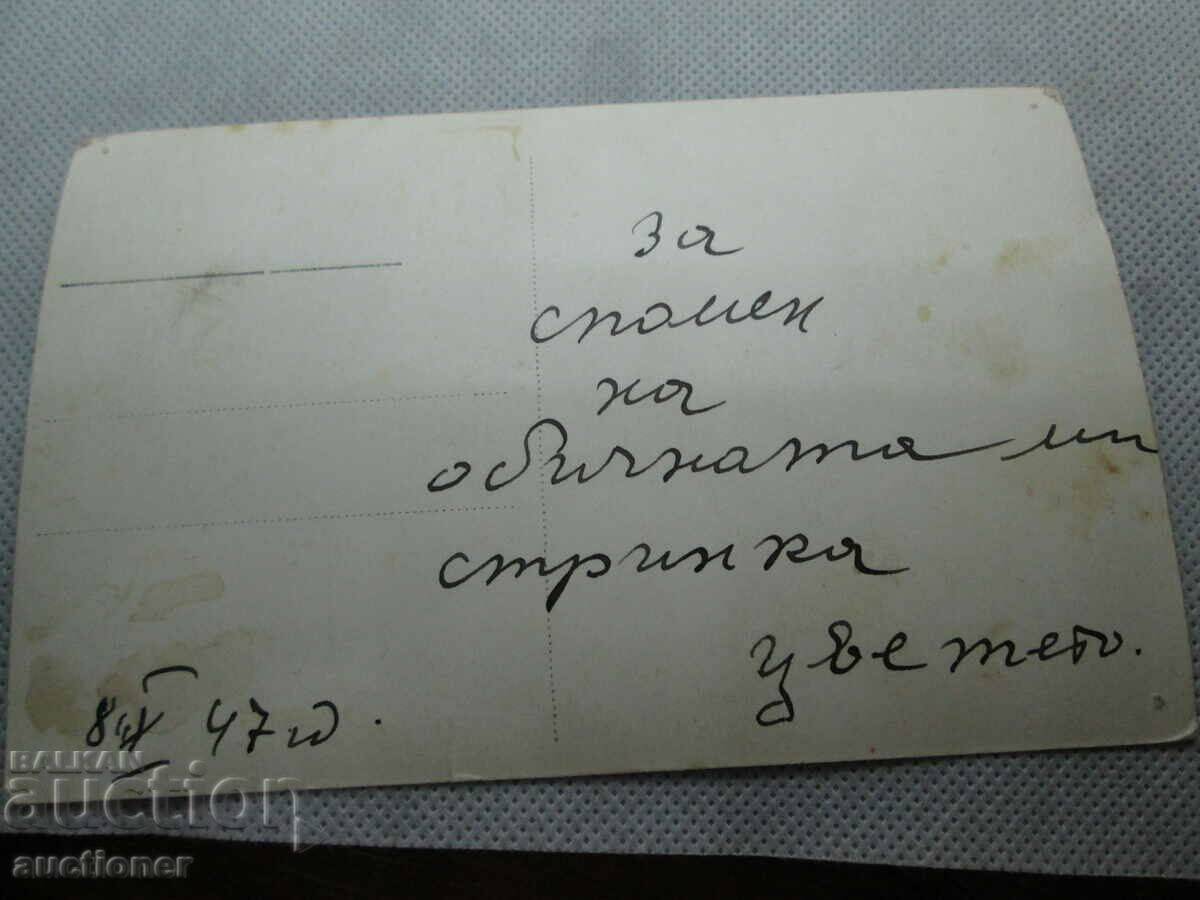 за
спомен
на
обичната ми
стринка
цветето.
47 г.
BALKAN
auction
auctioner